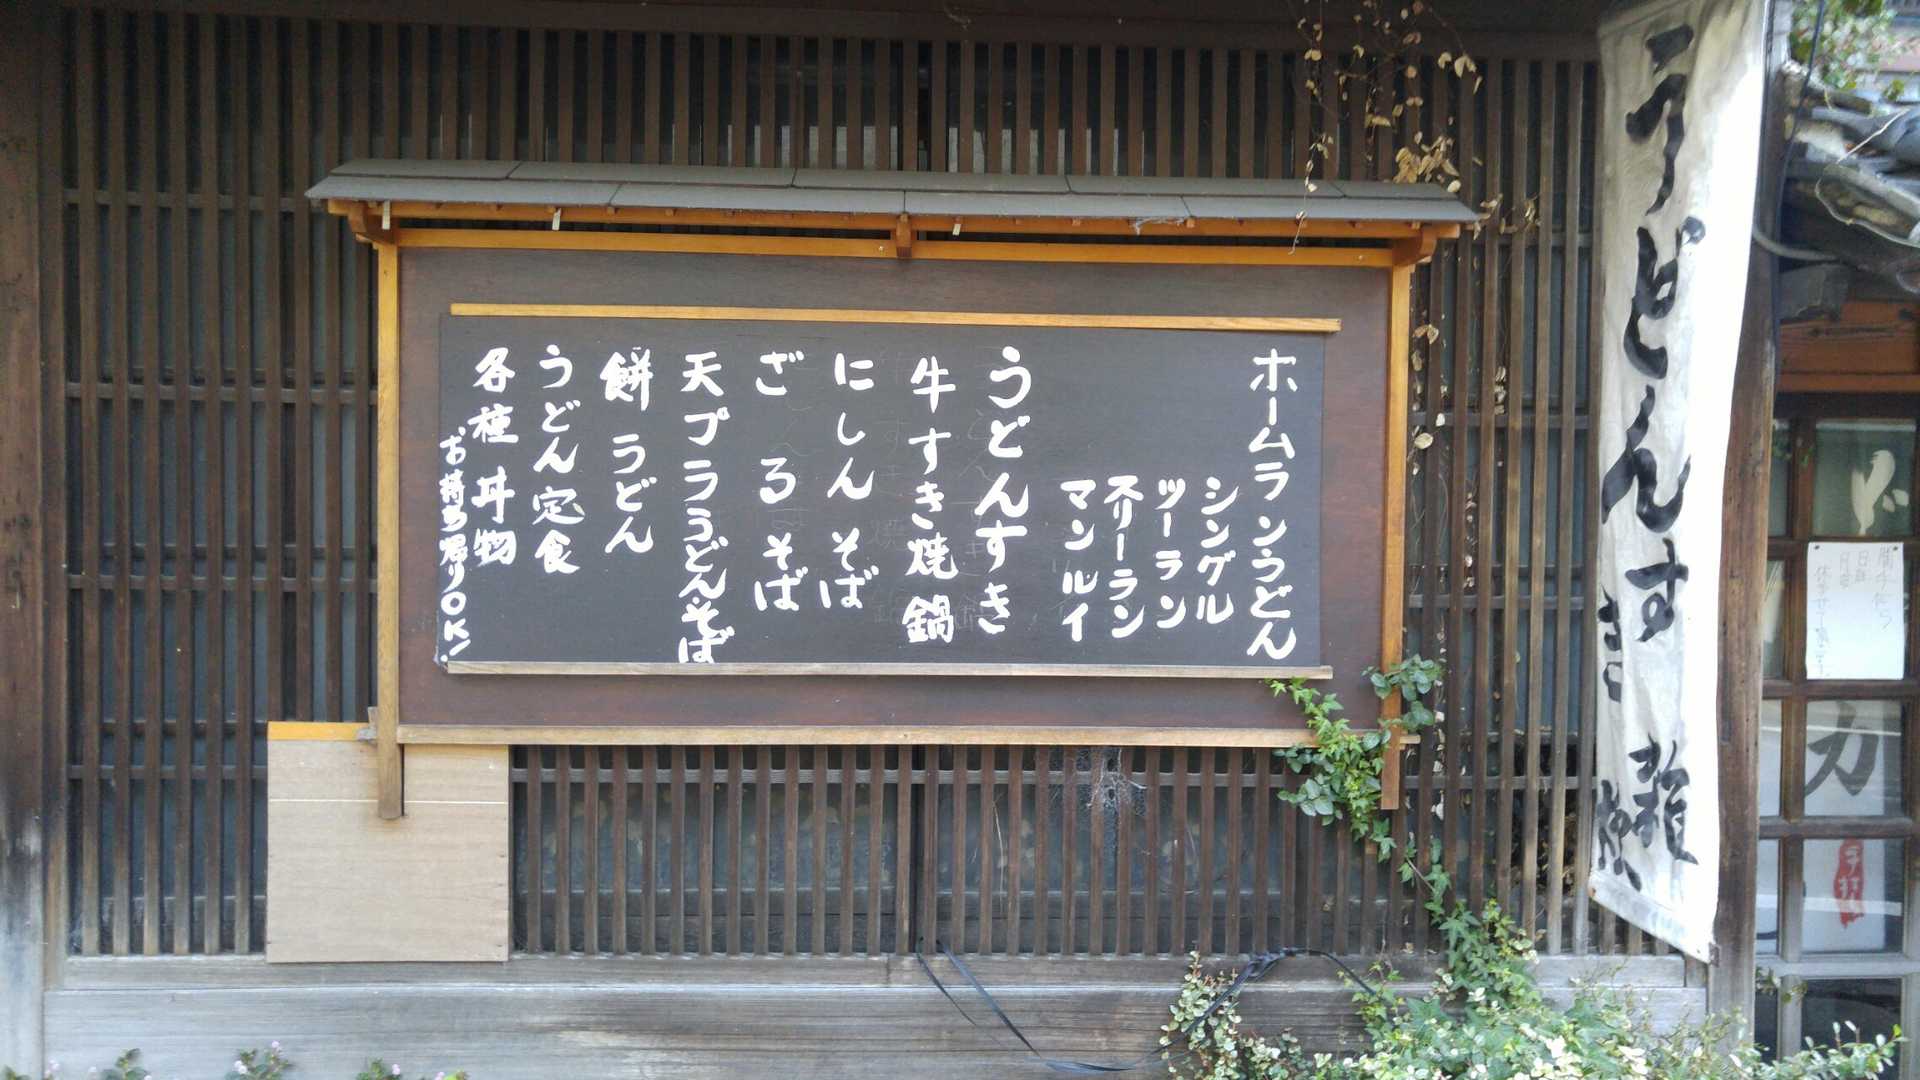 ホームランうどん
シングル
ツーラン
スリーラン
マンルイ
うどんすき
牛すき焼鍋
にしんそば
ざるそば
天プラうどん.そば
餅うどん
うどん定食
各種丼物
お持ち帰りOK!
うどんすき
雑炊
手打
力